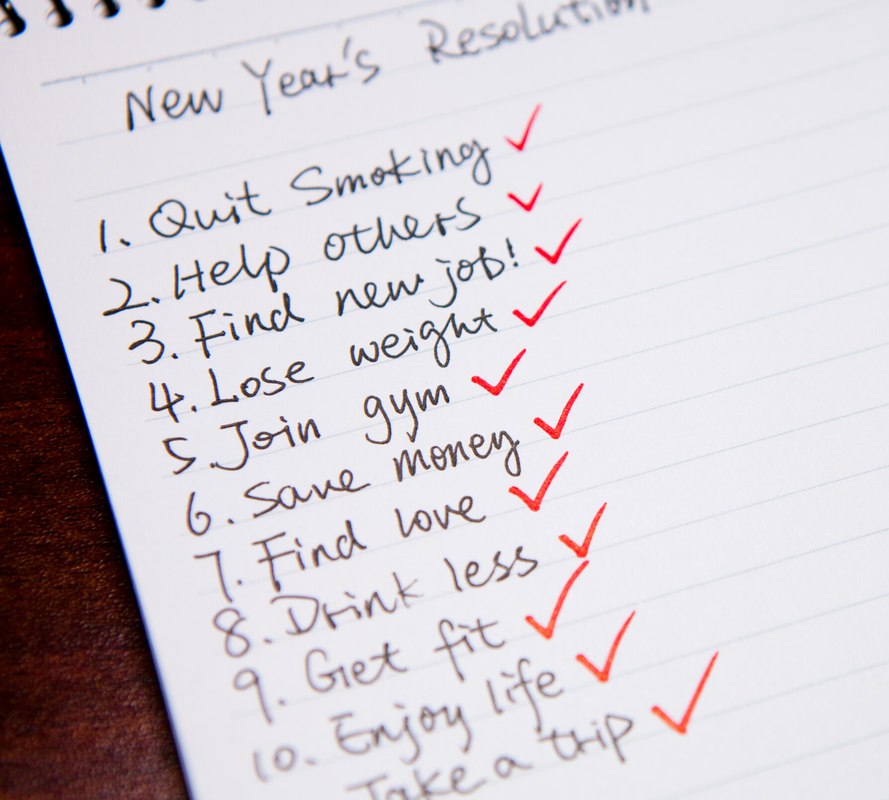 New Year's Resolution
1. Quit Smoking ✓
2. Help others ✓
3. Find new job! ✓
4. Lose weight ✓
5. Join gym ✓
6. Save money ✓
7. Find love ✓
8. Drink less ✓
9. Get fit ✓
10. Enjoy life ✓
Take a trip ✓